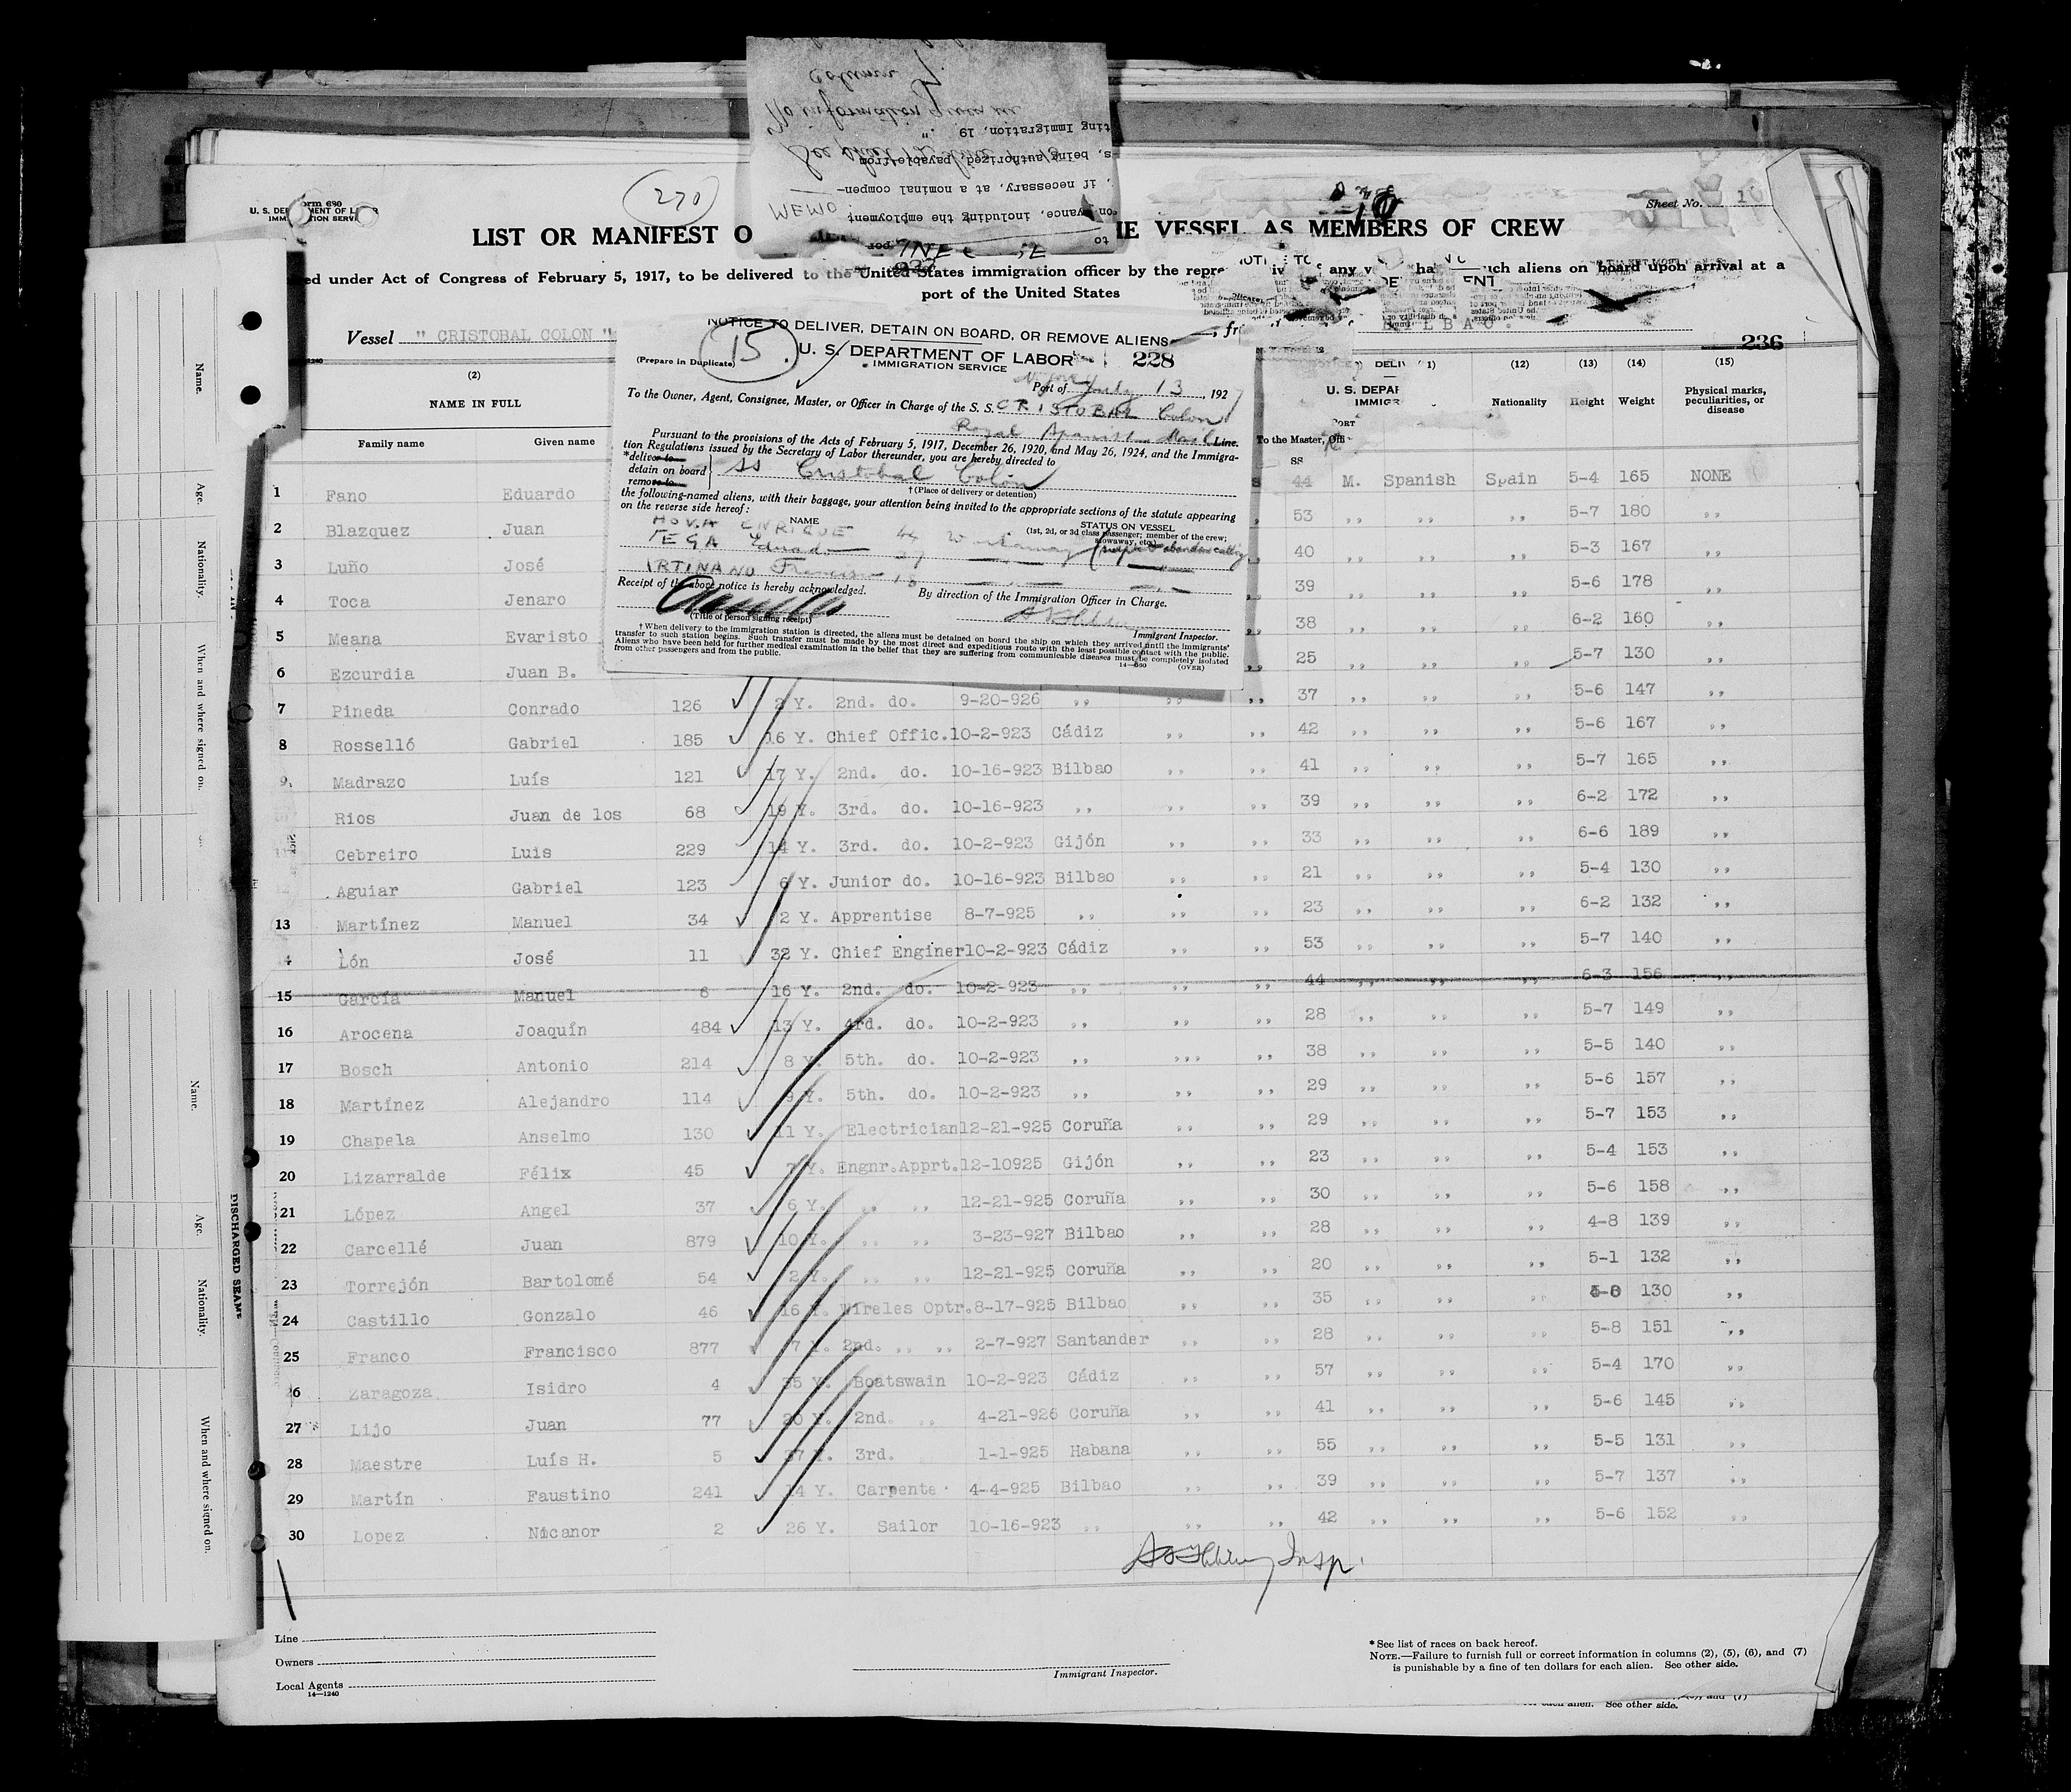 column
No information given in
ting Immigration, 19 ."
s, being authorized payable from
, if necessary, at a nominal compen-
MEMO
onveyance, including the employment
to
270
Form 680
U. S. DEPARTMENT OF LABOR
IMMIGRATION SERVICE
Sheet No. 1
LIST OR MANIFEST O HE VESSEL AS MEMBERS OF CREW
ed under Act of Congress of February 5, 1917, to be delivered to the United States immigration officer by the repre any such aliens on board upon arrival at a
port of the United States
Vessel " CRISTOBAL COLON "
BILBAO.
236
NOTICE TO DELIVER, DETAIN ON BOARD, OR REMOVE ALIENS
15
(Prepare in Duplicate)
U. S. DEPARTMENT OF LABOR
228
IMMIGRATION SERVICE
Port of N. York July 13, 1927
To the Owner, Agent, Consignee, Master, or Officer in Charge of the S. S. CRISTOBAL Colon
Royal Spanish Mail Line.
Pursuant to the provisions of the Acts of February 5, 1917, December 26, 1920, and May 26, 1924, and the Immigra-
tion Regulations issued by the Secretary of Labor thereunder, you are hereby directed to
*deliver to
detain on board SS Cristobal Colón
remove to
† (Place of delivery or detention)
the following-named aliens, with their baggage, your attention being invited to the appropriate sections of the statute appearing
on the reverse side hereof:
NAME
STATUS ON VESSEL
(1st, 2d, or 3d class passenger; member of the crew;
stowaway, etc.)
HOVA ENRIQUE 44
EGA Eduardo 27
RTINANO Francisco
Receipt of the above notice is hereby acknowledged.
By direction of the Immigration Officer in Charge.
(Title of person signing receipt)
Immigrant Inspector.
† When delivery to the immigration station is directed, the aliens must be detained on board the ship on which they arrived until the immigrants'
transfer to such station begins. Such transfer must be made by the most direct and expeditious route with the least possible contact with the public.
Aliens who have been held for further medical examination in the belief that they are suffering from communicable diseases must be completely isolated
from other passengers and from the public.
14—660 (OVER)
U. S. DEPAR
IMMIGR
PORT
To the Master, Offi
SS
(2) (12) (13) (14) (15)
NAME IN FULL Nationality Height Weight Physical marks, peculiarities, or disease
Family name Given name
1 Fano Eduardo 44 M. Spanish Spain 5-4 165 NONE
2 Blazquez Juan 53 ,, ,, ,, 5-7 180 ,,
3 Luño José 40 ,, ,, ,, 5-3 167 ,,
4 Toca Jenaro 39 ,, ,, ,, 5-6 178 ,,
5 Meana Evaristo 38 ,, ,, ,, 6-2 160 ,,
6 Ezcurdia Juan B. 25 ,, ,, ,, 5-7 130 ,,
7 Pineda Conrado 126 2 Y. 2nd. do. 9-20-926 ,, ,, ,, 37 ,, ,, ,, 5-6 147 ,,
8 Rosselló Gabriel 185 16 Y. Chief Offic. 10-2-923 Cádiz ,, ,, 42 ,, ,, ,, 5-6 167 ,,
9 Madrazo Luís 121 17 Y. 2nd. do. 10-16-923 Bilbao ,, ,, 41 ,, ,, ,, 5-7 165 ,,
Rios Juan de los 68 19 Y. 3rd. do. 10-16-923 ,, ,, ,, 39 ,, ,, ,, 6-2 172 ,,
Cebreiro Luis 229 14 Y. 3rd. do. 10-2-923 Gijón ,, ,, 33 ,, ,, ,, 6-6 189 ,,
Aguiar Gabriel 123 6 Y. Junior do. 10-16-923 Bilbao ,, ,, 21 ,, ,, ,, 5-4 130 ,,
13 Martínez Manuel 34 2 Y. Apprentise 8-7-925 ,, ,, ,, 23 ,, ,, ,, 6-2 132 ,,
14 Lón José 11 32 Y. Chief Enginer 10-2-923 Cádiz ,, ,, 53 ,, ,, ,, 5-7 140 ,,
15 García Manuel 6 16 Y. 2nd. do. 10-2-923 ,, ,, ,, 44 ,, ,, ,, 6-3 156 ,,
16 Arocena Joaquín 484 13 Y. 4rd. do. 10-2-923 ,, ,, ,, 28 ,, ,, ,, 5-7 149 ,,
17 Bosch Antonio 214 8 Y. 5th. do. 10-2-923 ,, ,,, ,, 38 ,, ,, ,, 5-5 140 ,,
18 Martínez Alejandro 114 9 Y. 5th. do. 10-2-923 ,, ,, ,, 29 ,, ,, ,, 5-6 157 ,,
19 Chapela Anselmo 130 11 Y. Electrician 12-21-925 Coruña ,, ,, 29 ,, ,, ,, 5-7 153 ,,
20 Lizarralde Félix 45 7 Y. Engnr.Apprt. 12-10925 Gijón ,, ,, 23 ,, ,, ,, 5-4 153 ,,
21 López Angel 37 6 Y. ,, ,, 12-21-925 Coruña ,, ,, 30 ,, ,, ,, 5-6 158 ,,
22 Carcellé Juan 879 10 Y. ,, ,, 3-23-927 Bilbao ,, ,, 28 ,, ,, ,, 4-8 139 ,,
23 Torrejón Bartolomé 54 2 Y. ,, ,, 12-21-925 Coruña ,, ,, 20 ,, ,, ,, 5-1 132 ,,
24 Castillo Gonzalo 46 16 Y. Wireles Optr. 8-17-925 Bilbao ,, ,, 35 ,, ,, ,, 130 ,,
25 Franco Francisco 877 7 Y. 2nd. ,, ,, 2-7-927 Santander ,, ,, 28 ,, ,, ,, 5-8 151 ,,
26 Zaragoza Isidro 4 35 Y. Boatswain 10-2-923 Cádiz ,, ,, 57 ,, ,, ,, 5-4 170 ,,
27 Lijo Juan 77 20 Y. 2nd. ,, 4-21-926 Coruña ,, ,, 41 ,, ,, ,, 5-6 145 ,,
28 Maestre Luís H. 5 37 Y. 3rd. 1-1-925 Habana ,, ,, 55 ,, ,, ,, 5-5 131 ,,
29 Martín Faustino 241 14 Y. Carpente 4-4-925 Bilbao ,, ,, 39 ,, ,, ,, 5-7 137 ,,
30 Lopez Nicanor 2 26 Y. Sailor 10-16-923 ,, ,, ,, 42 ,, ,, ,, 5-6 152 ,,
Insp.
Line
Owners
Local Agents
14—1240
Immigrant Inspector.
* See list of races on back hereof.
NOTE.—Failure to furnish full or correct information in columns (2), (5), (6), and (7)
is punishable by a fine of ten dollars for each alien. See other side.
each alien. See other side.
Name.
Age.
Nationality.
When and where signed on.
Name.
Age.
Nationality.
When and where signed on.
DISCHARGED SEAME